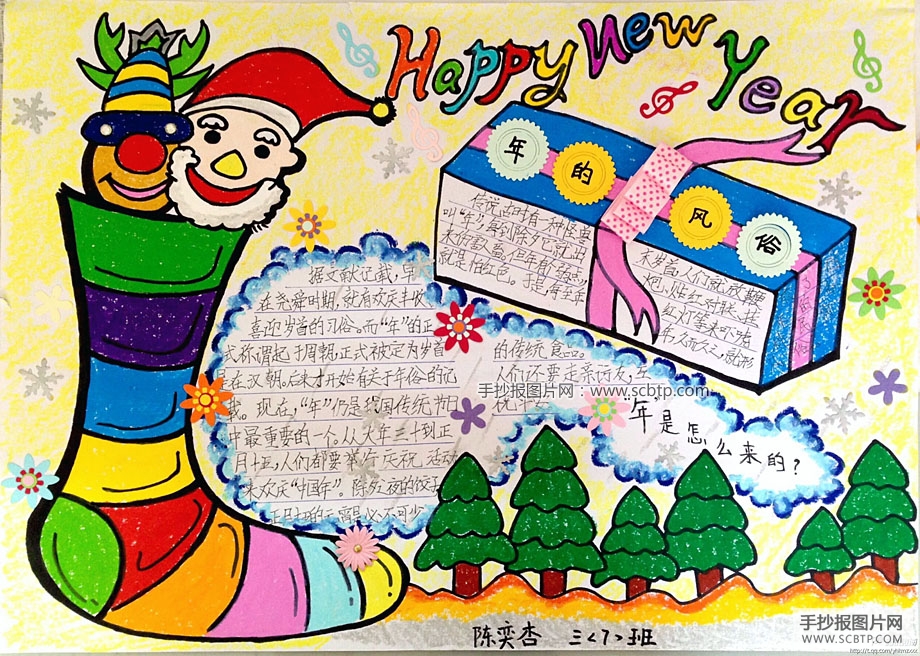 Happy New Year
年的风俗
传说古时有一种怪兽
叫“年”,
就是怕红色。于是每至年
末岁首,人们就放鞭
炮、贴红对联、挂
红灯等来吓唬
年是怎么来的?
据文献记载,早
在尧舜时期,就有欢庆丰收
喜迎岁首的习俗。而“年”的正
式称谓起于周朝,正式被定为岁首
是在汉朝。后来才开始有关于年俗的记
载。现在,“年”仍是我国传统节日
中最重要的一个。从大年三十到正
月十五,人们都要举行庆祝活动
来欢庆“中国年”。除夕夜的饺子
正月初的元宵是必不可少
的传统食品。
人们还要走亲访友,
手抄报图片网:www.scbtp.com
陈奕杏 三<7>班
手抄报图片网
WWW.SCBTP.COM